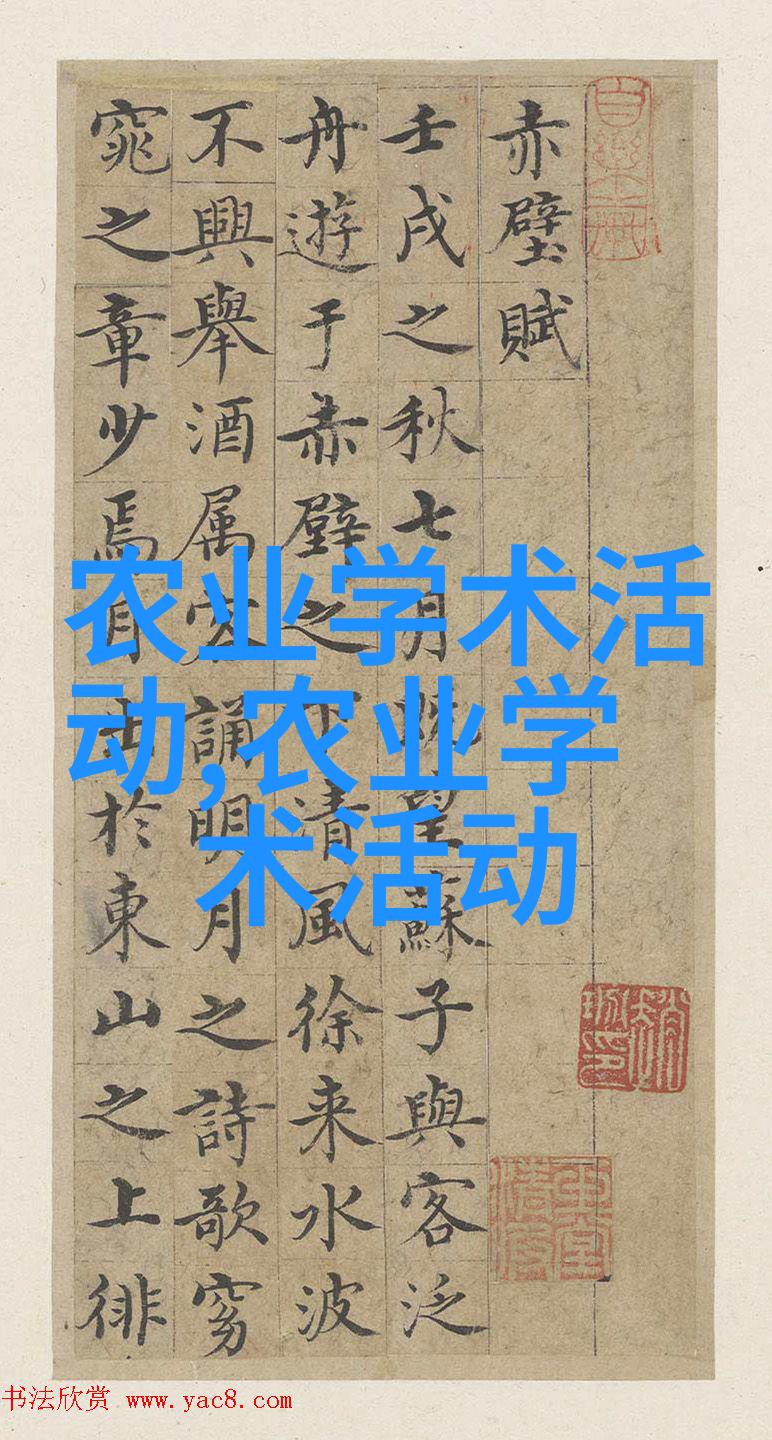 赤壁賦
壬戌之秋七月既望蘇子與客泛
舟遊于赤壁之下清風徐来水波
不興舉酒属客誦明月之詩歌窈
窕之章少焉月出於東山之上徘
农业学术活
动,农业学
术活动
书法欣赏 www.yac8.com